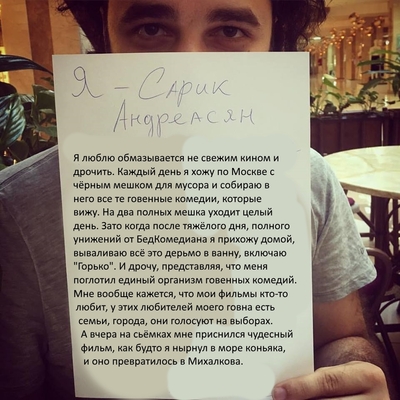 Я - Сарик
Андреасян
Я люблю обмазывается не свежим кином и
дрочить. Каждый день я хожу по Москве с
чёрным мешком для мусора и собираю в
него все те говенные комедии, которые
вижу. На два полных мешка уходит целый
день. Зато когда после тяжёлого дня, полного
унижений от БедКомедиана я прихожу домой,
вываливаю всё это дерьмо в ванну, включаю
"Горько". И дрочу, представляя, что меня
поглотил единый организм говенных комедий.
Мне вообще кажется, что мои фильмы кто-то
любит, у этих любителей моего говна есть
семьи, города, они голосуют на выборах.
А вчера на сьёмках мне приснился чудесный
фильм, как будто я нырнул в море коньяка,
и оно превратилось в Михалкова.